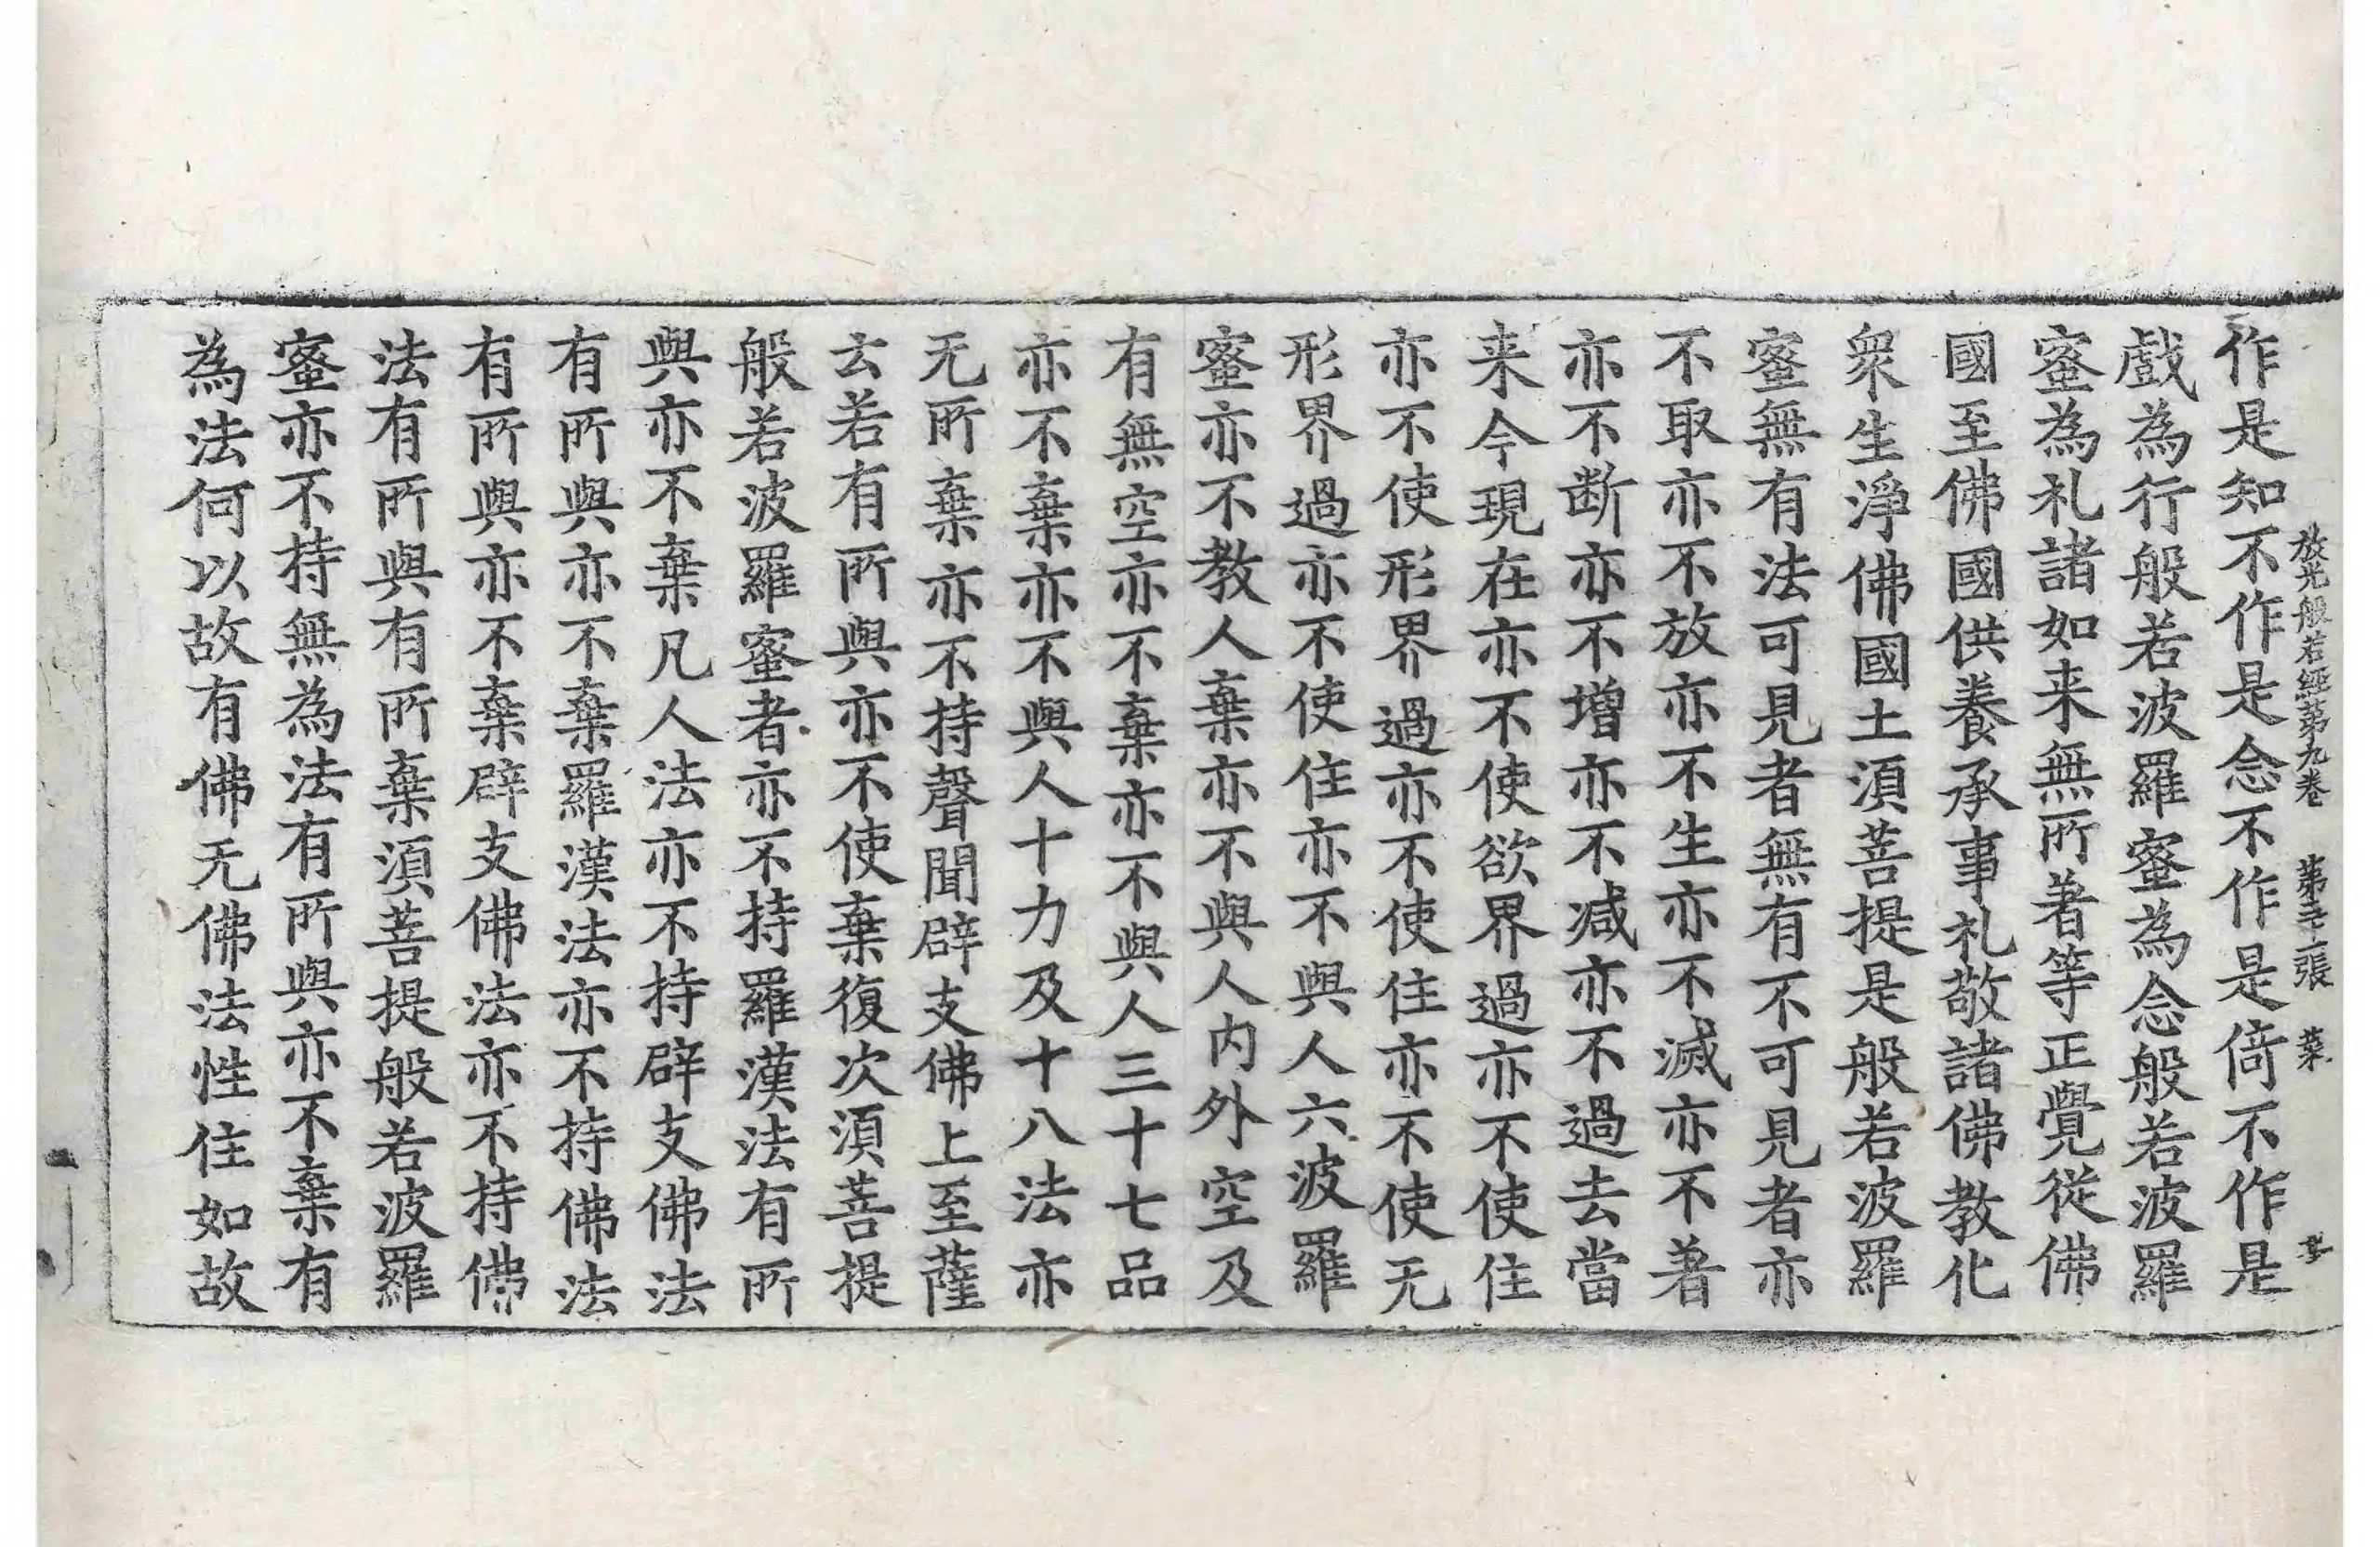 放光般若經第九卷 第三張 菜
作是知不作是念不作是倚不作是
戲為行般若波羅蜜為念般若波羅
蜜為礼諸如来無所著等正覺從佛
國至佛國供養承事礼敬諸佛教化
衆生淨佛國土須菩提是般若波羅
蜜無有法可見者無有不可見者亦
不取亦不放亦不生亦不滅亦不著
亦不断亦不增亦不減亦不過去當
来今現在亦不使欲界過亦不使住
亦不使形界過亦不使住亦不使无
形界過亦不使住亦不與人六波羅
蜜亦不教人棄亦不與人内外空及
有無空亦不棄亦不與人三十七品
亦不棄亦不與人十力及十八法亦
无所棄亦不持聲聞辟支佛上至薩
云若有所與亦不使棄復次須菩提
般若波羅蜜者亦不持羅漢法有所
與亦不棄凡人法亦不持辟支佛法
有所與亦不棄羅漢法亦不持佛法
有所與亦不棄辟支佛法亦不持佛
法有所與有所棄須菩提般若波羅
蜜亦不持無為法有所與亦不棄有
為法何以故有佛无佛法性住如故